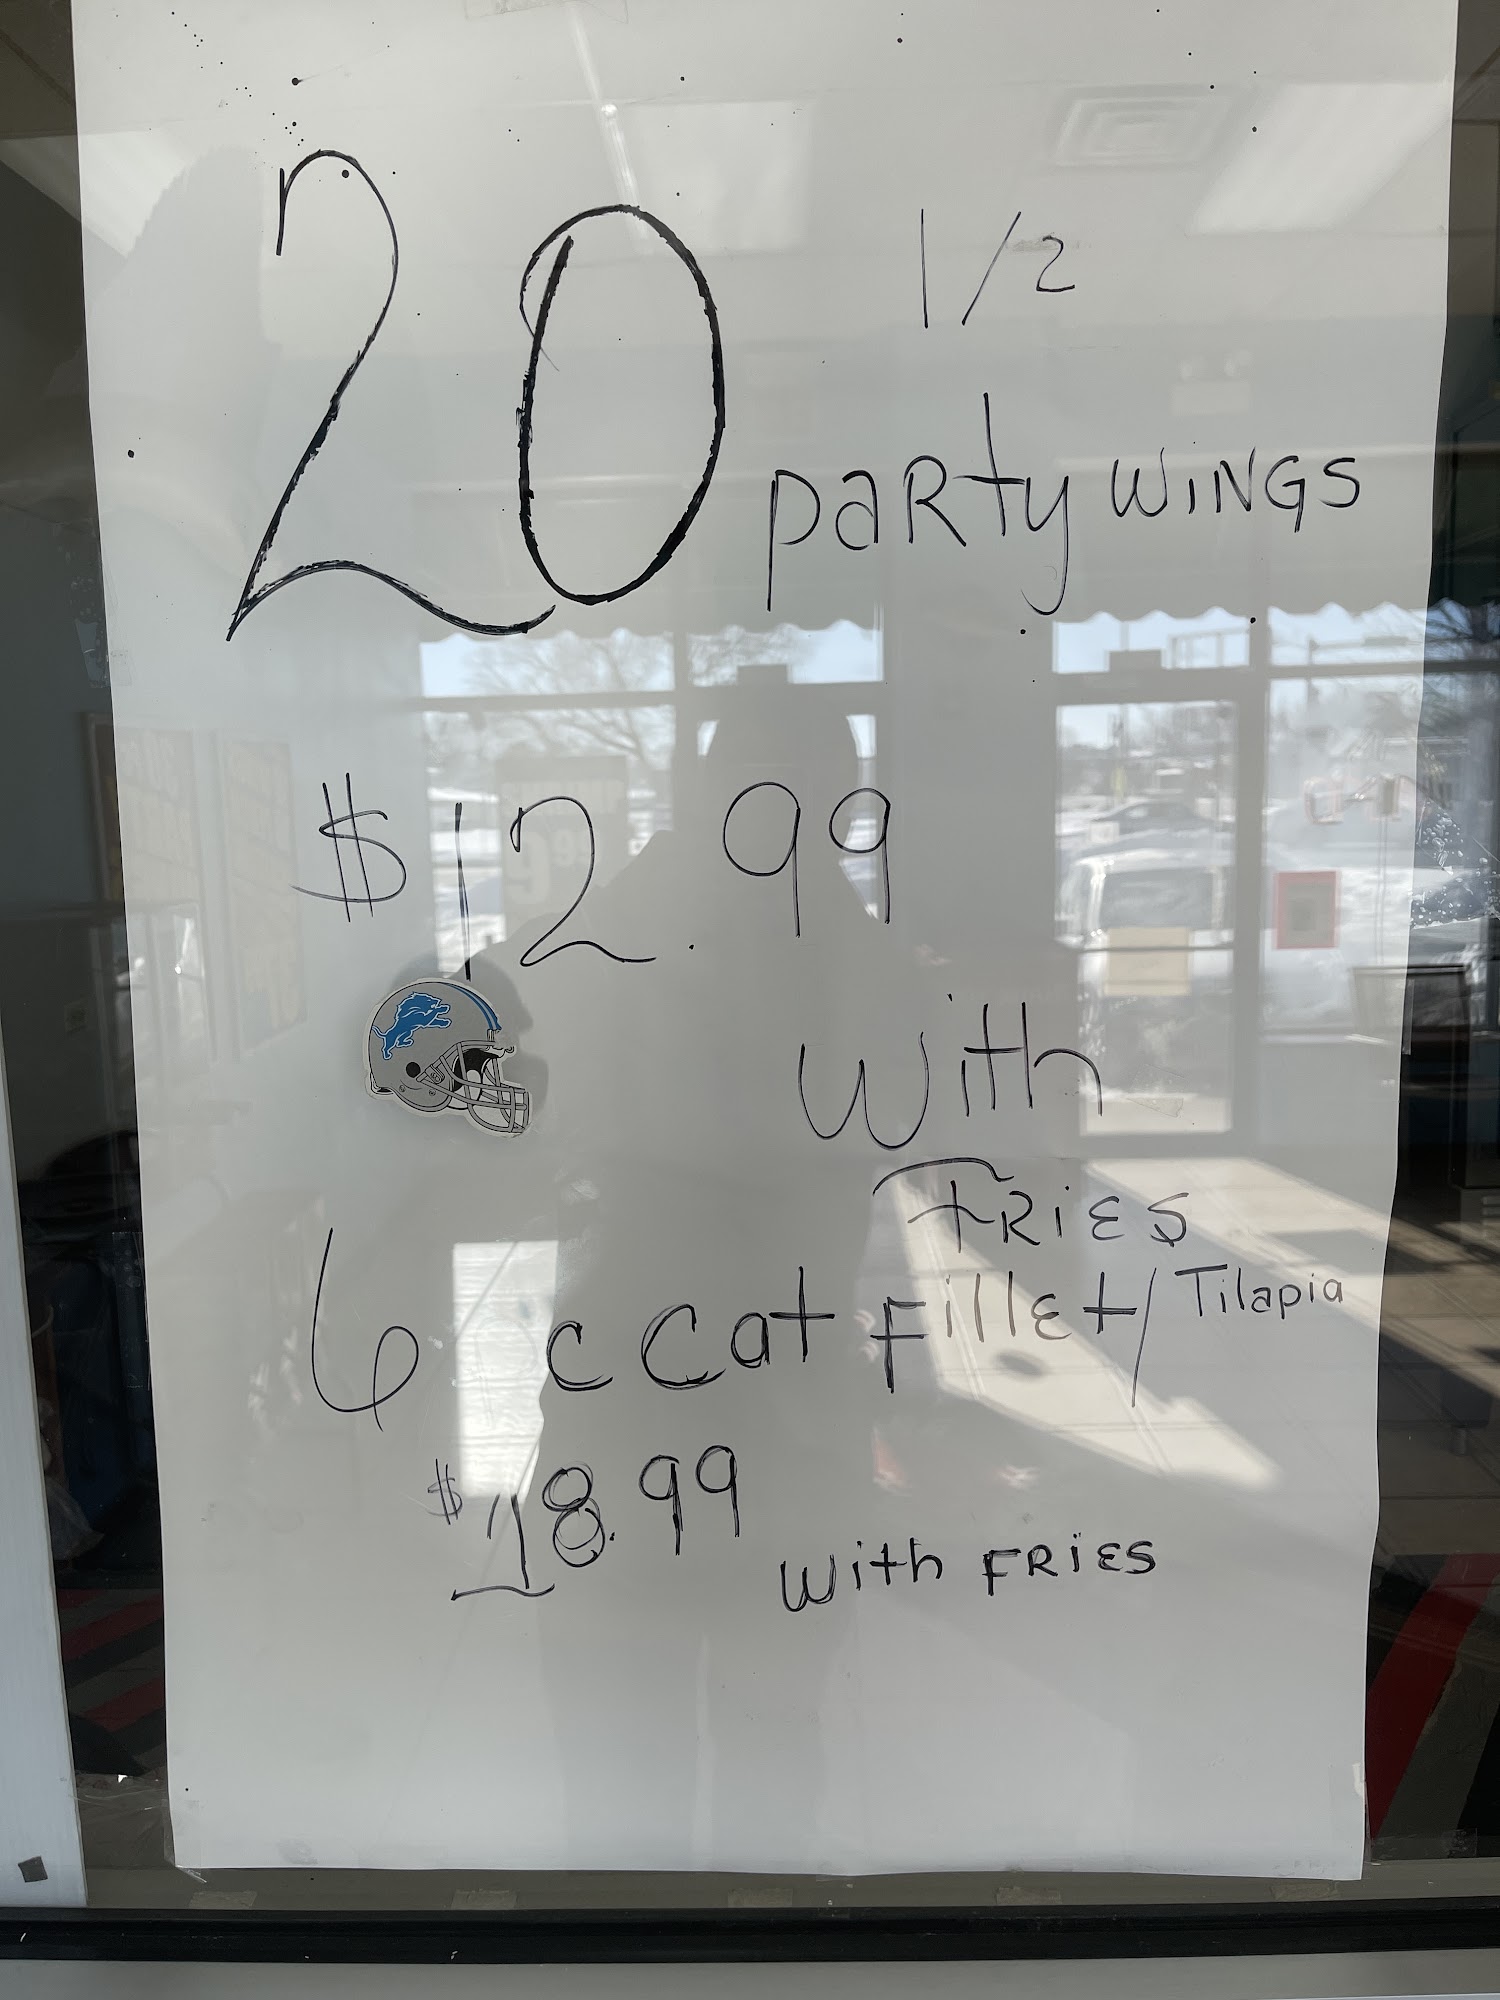 20 1/2
party WiNGS
$12.99
With
FRiES
6 c Cat Fillet/Tilapia
$18.99
With FRiES